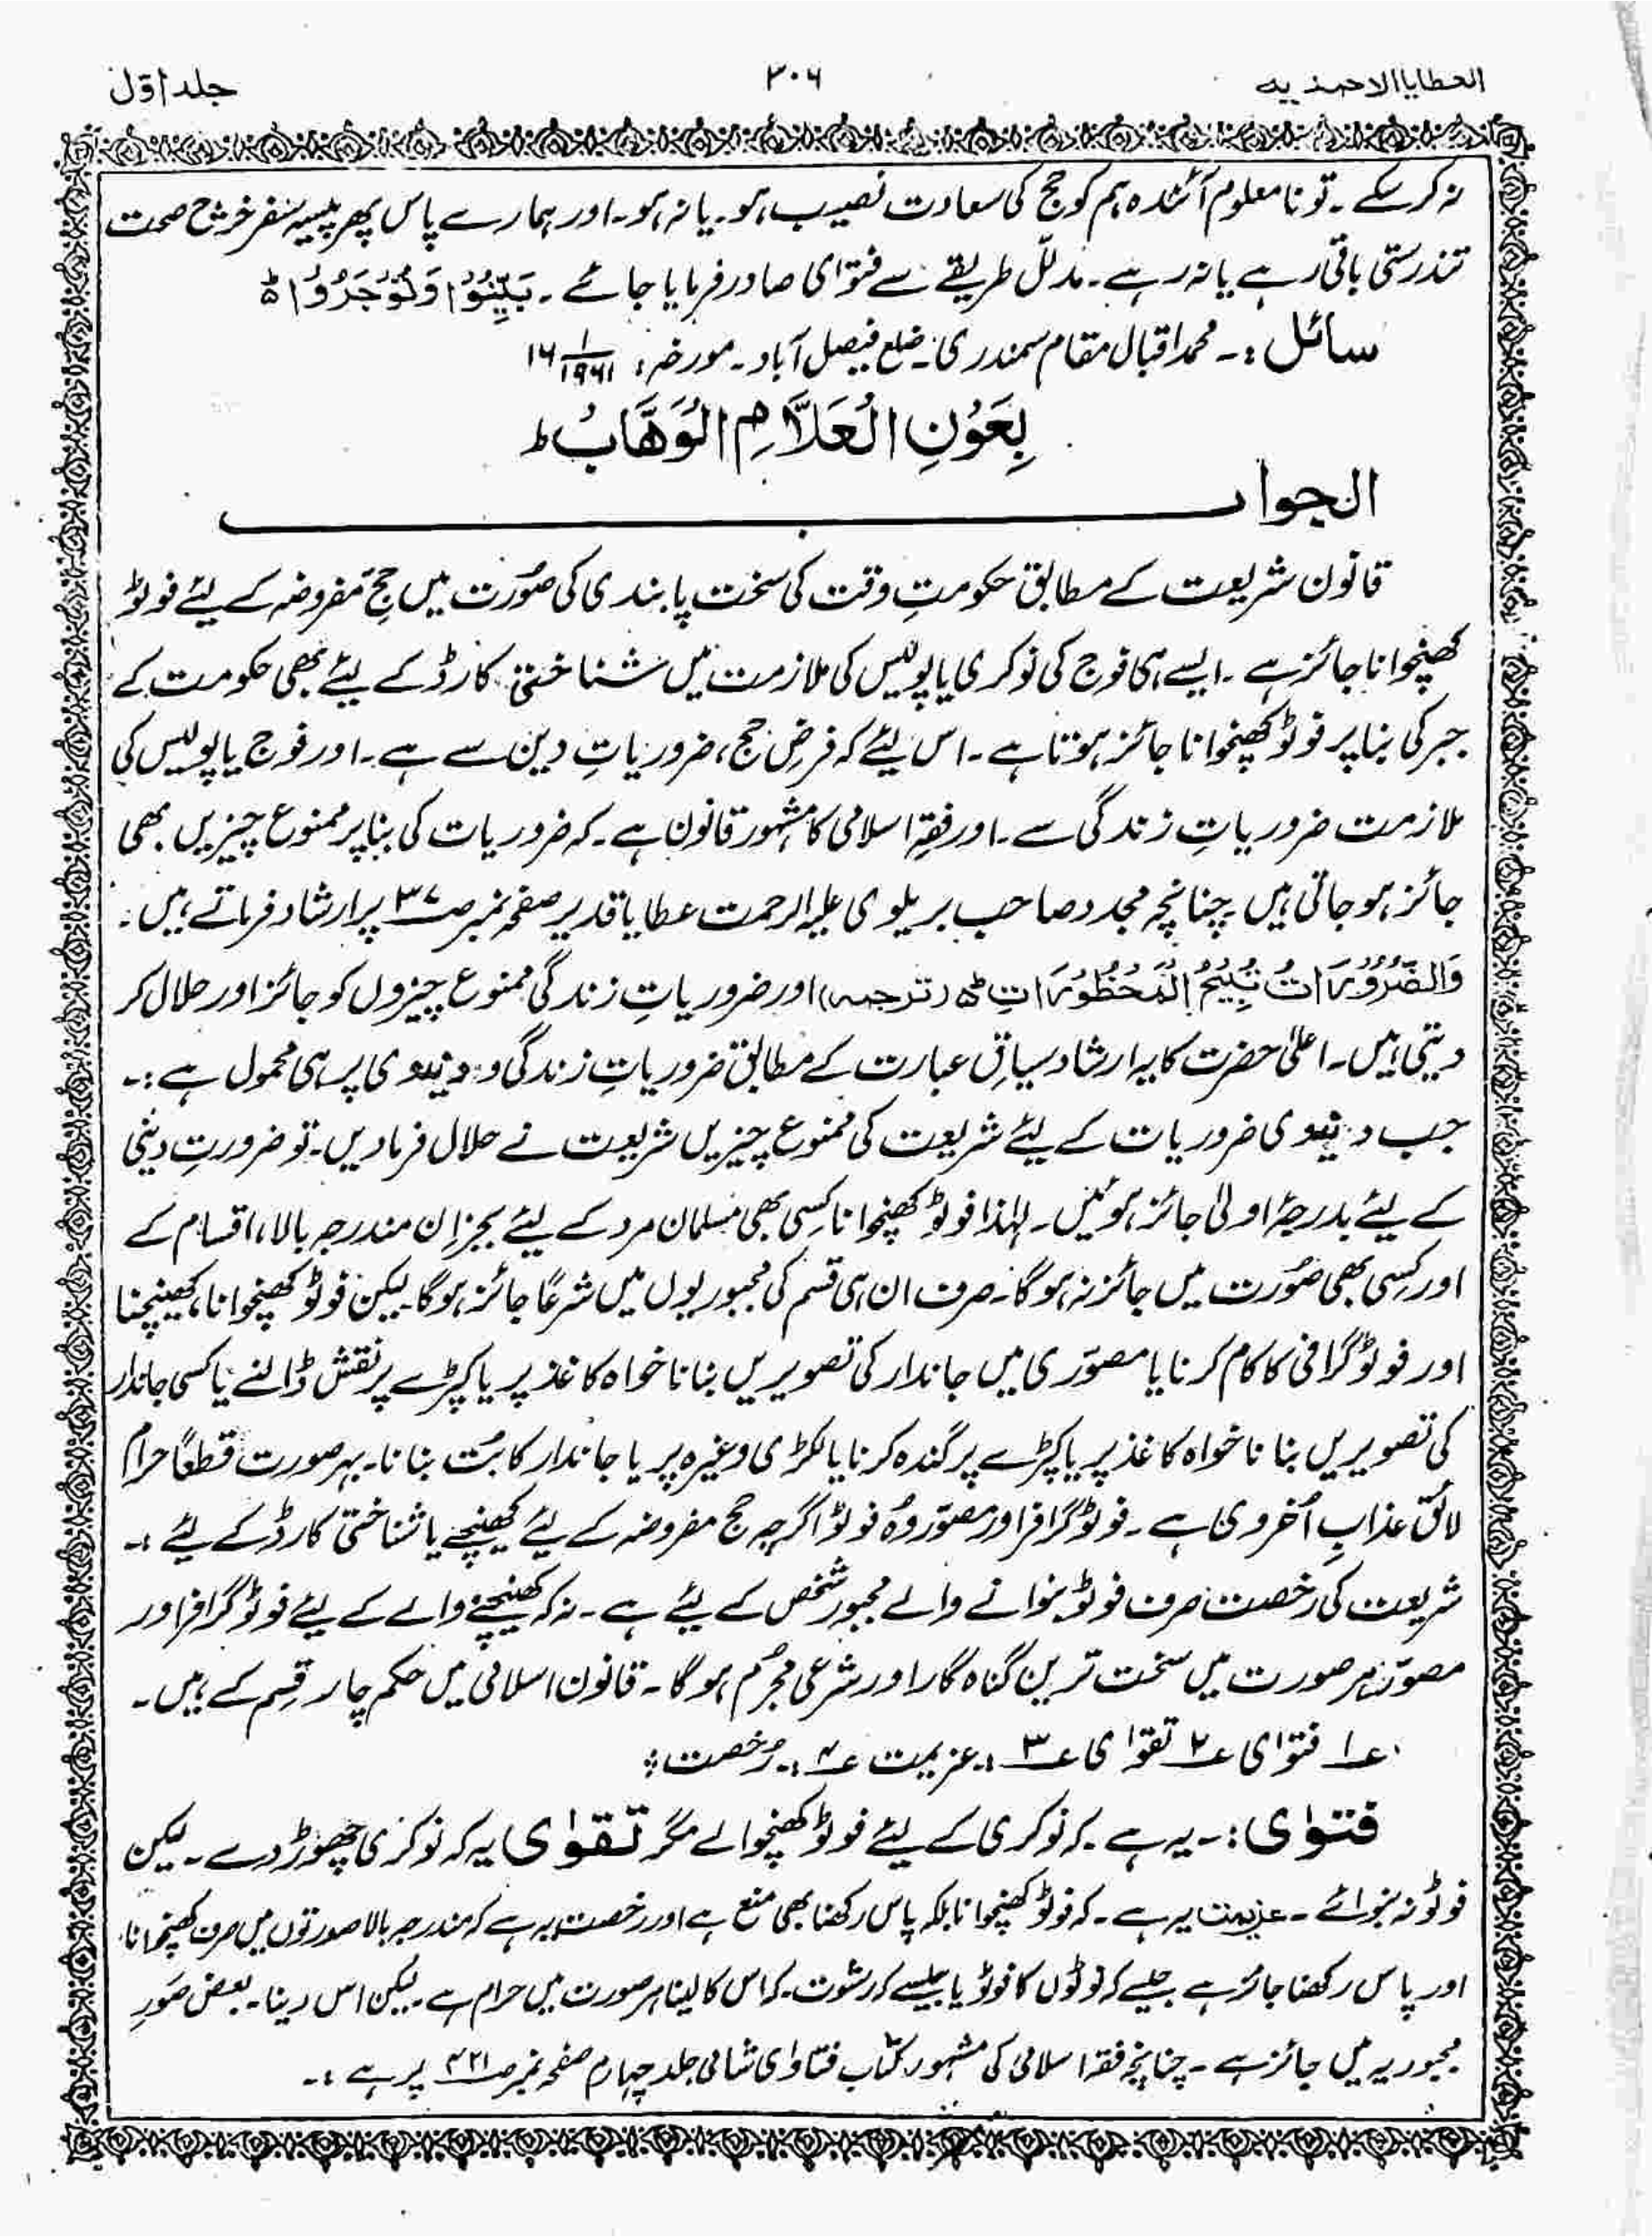 العطایا الاحمدیه
۳۰۶
جلد اوّل
نہ کر سکے۔ تو نامعلوم آئندہ ہم کو حج کی سعادت نصیب ہو۔ یا نہ ہو۔ اور ہمارے پاس پھر پیسہ سفر خرچ صحت
تندرستی باقی رہے یا نہ رہے۔ مدلّل طریقے سے فتوٰی صادر فرمایا جائے۔ بَیِّنُوْا وَتُوْجَرُوْا ہ
سائل:۔ محمد اقبال مقام سمندری۔ ضلع فیصل آباد۔ مورخہ: ۱۶/۱/۱۹۶۱
بِعَوْنِ الْعَلَّامِ الْوَهَّابُ ط
الجواب
قانون شریعت کے مطابق حکومتِ وقت کی سخت پابندی کی صُورت میں حجِّ مفروضہ کے لیئے فوٹو
کھنچوانا جائز ہے۔ ایسے ہی فوج کی نوکری یا پولیس کی ملازمت میں شناختی کارڈ کے لیئے بھی حکومت کے
جبر کی بنا پر فوٹو کھنچوانا جائز ہوتا ہے۔ اس لیئے کہ فرضِ حج، ضروریاتِ دین سے ہے۔ اور فوج یا پولیس کی
ملازمت ضروریاتِ زندگی سے۔ اور فقہِ اسلامی کا مشہور قانون ہے۔ کہ ضروریات کی بنا پر ممنوع چیزیں بھی
جائز ہو جاتی ہیں۔ چنانچہ مجدد صاحب بریلوی علیہ الرحمت عطایا قدیر صفحہ نمبر صـ۳۷ پر ارشاد فرماتے ہیں۔
وَالضَّرُوْرَاتُ تُبِیْحُ الْمَحْظُوْرَاتِ ہ (ترجمہ) اور ضروریاتِ زندگی ممنوع چیزوں کو جائز اور حلال کر
دیتی ہیں۔ اعلیٰ حضرت کا یہ ارشاد سیاقِ عبارت کے مطابق ضروریاتِ زندگی و دنیوی پر ہی محمول ہے:۔
جب دنیوی ضروریات کے لیئے شریعت کی ممنوع چیزیں شریعت نے حلال فرما دیں۔ تو ضرورتِ دینی
کے لیئے بدرجۂ اولیٰ جائز ہوئیں۔ لہٰذا فوٹو کھنچوانا کِسی بھی مسلمان مرد کے لیئے بجز اِن مندرجہ بالا، اقسام کے
اور کِسی بھی صُورت میں جائز نہ ہوگا۔ صرف ان ہی قسم کی مجبوریوں میں شرعًا جائز ہوگا لیکن فوٹو کھنچوانا، کھینچنا
اور فوٹوگرافی کا کام کرنا یا مصوّری میں جاندار کی تصویریں بنانا خواہ کاغذ پر یا کپڑے پر نقش ڈالنے یا کسی جاندار
کی تصویریں بنانا خواہ کاغذ پر یا کپڑے پر گندہ کرنا یا لکڑی وغیرہ پر یا جاندار کا بُت بنانا۔ بہر صورت قطعًا حرام
لائق عذابِ اُخروی ہے۔ فوٹوگرافر اور مصوّر وُہ فوٹو اگرچہ حج مفروضہ کے لیئے کھینچے یا شناختی کارڈ کے لیئے:۔
شریعت کی رخصت صرف فوٹو بنوانے والے مجبور شخص کے لیئے ہے۔ نہ کہ کھینچنے والے کے لیئے فوٹوگرافر اور
مصوّر ہر صورت میں سخت ترین گناہ گار اور شرعی مجرُم ہوگا۔ قانون اسلامی میں حکم چار قِسم کے ہیں۔
۱؎ فتوٰی ۲؎ تقوٰی ۳؎:۔ عزیمت ۴؎:۔ رُخصت:
فتوٰی:۔ یہ ہے کہ نوکری کے لیئے فوٹو کھنچوالے مگر تقوٰی یہ کہ نوکری چھوڑ دے۔ لیکن
فوٹو نہ بنوائے۔ عزیمت یہ ہے۔ کہ فوٹو کھنچوانا بلکہ پاس رکھنا بھی منع ہے اور رخصت یہ ہے کہ مندرجہ بالا صورتوں میں صرف کھنچوانا
اور پاس رکھنا جائز ہے جیسے کہ نوٹوں کا فوٹو یا جیسے کہ رشوت۔ کہ اس کا لینا ہر صورت میں حرام ہے۔ لیکن اس دینا۔ بعض صَورِ
مجبوریہ میں جائز ہے۔ چنانچہ فقہ اسلامی کی مشہور کتاب فتاوٰی شامی جلد چہارم صفحہ نمبر صـ۴۲۱ پر ہے:۔